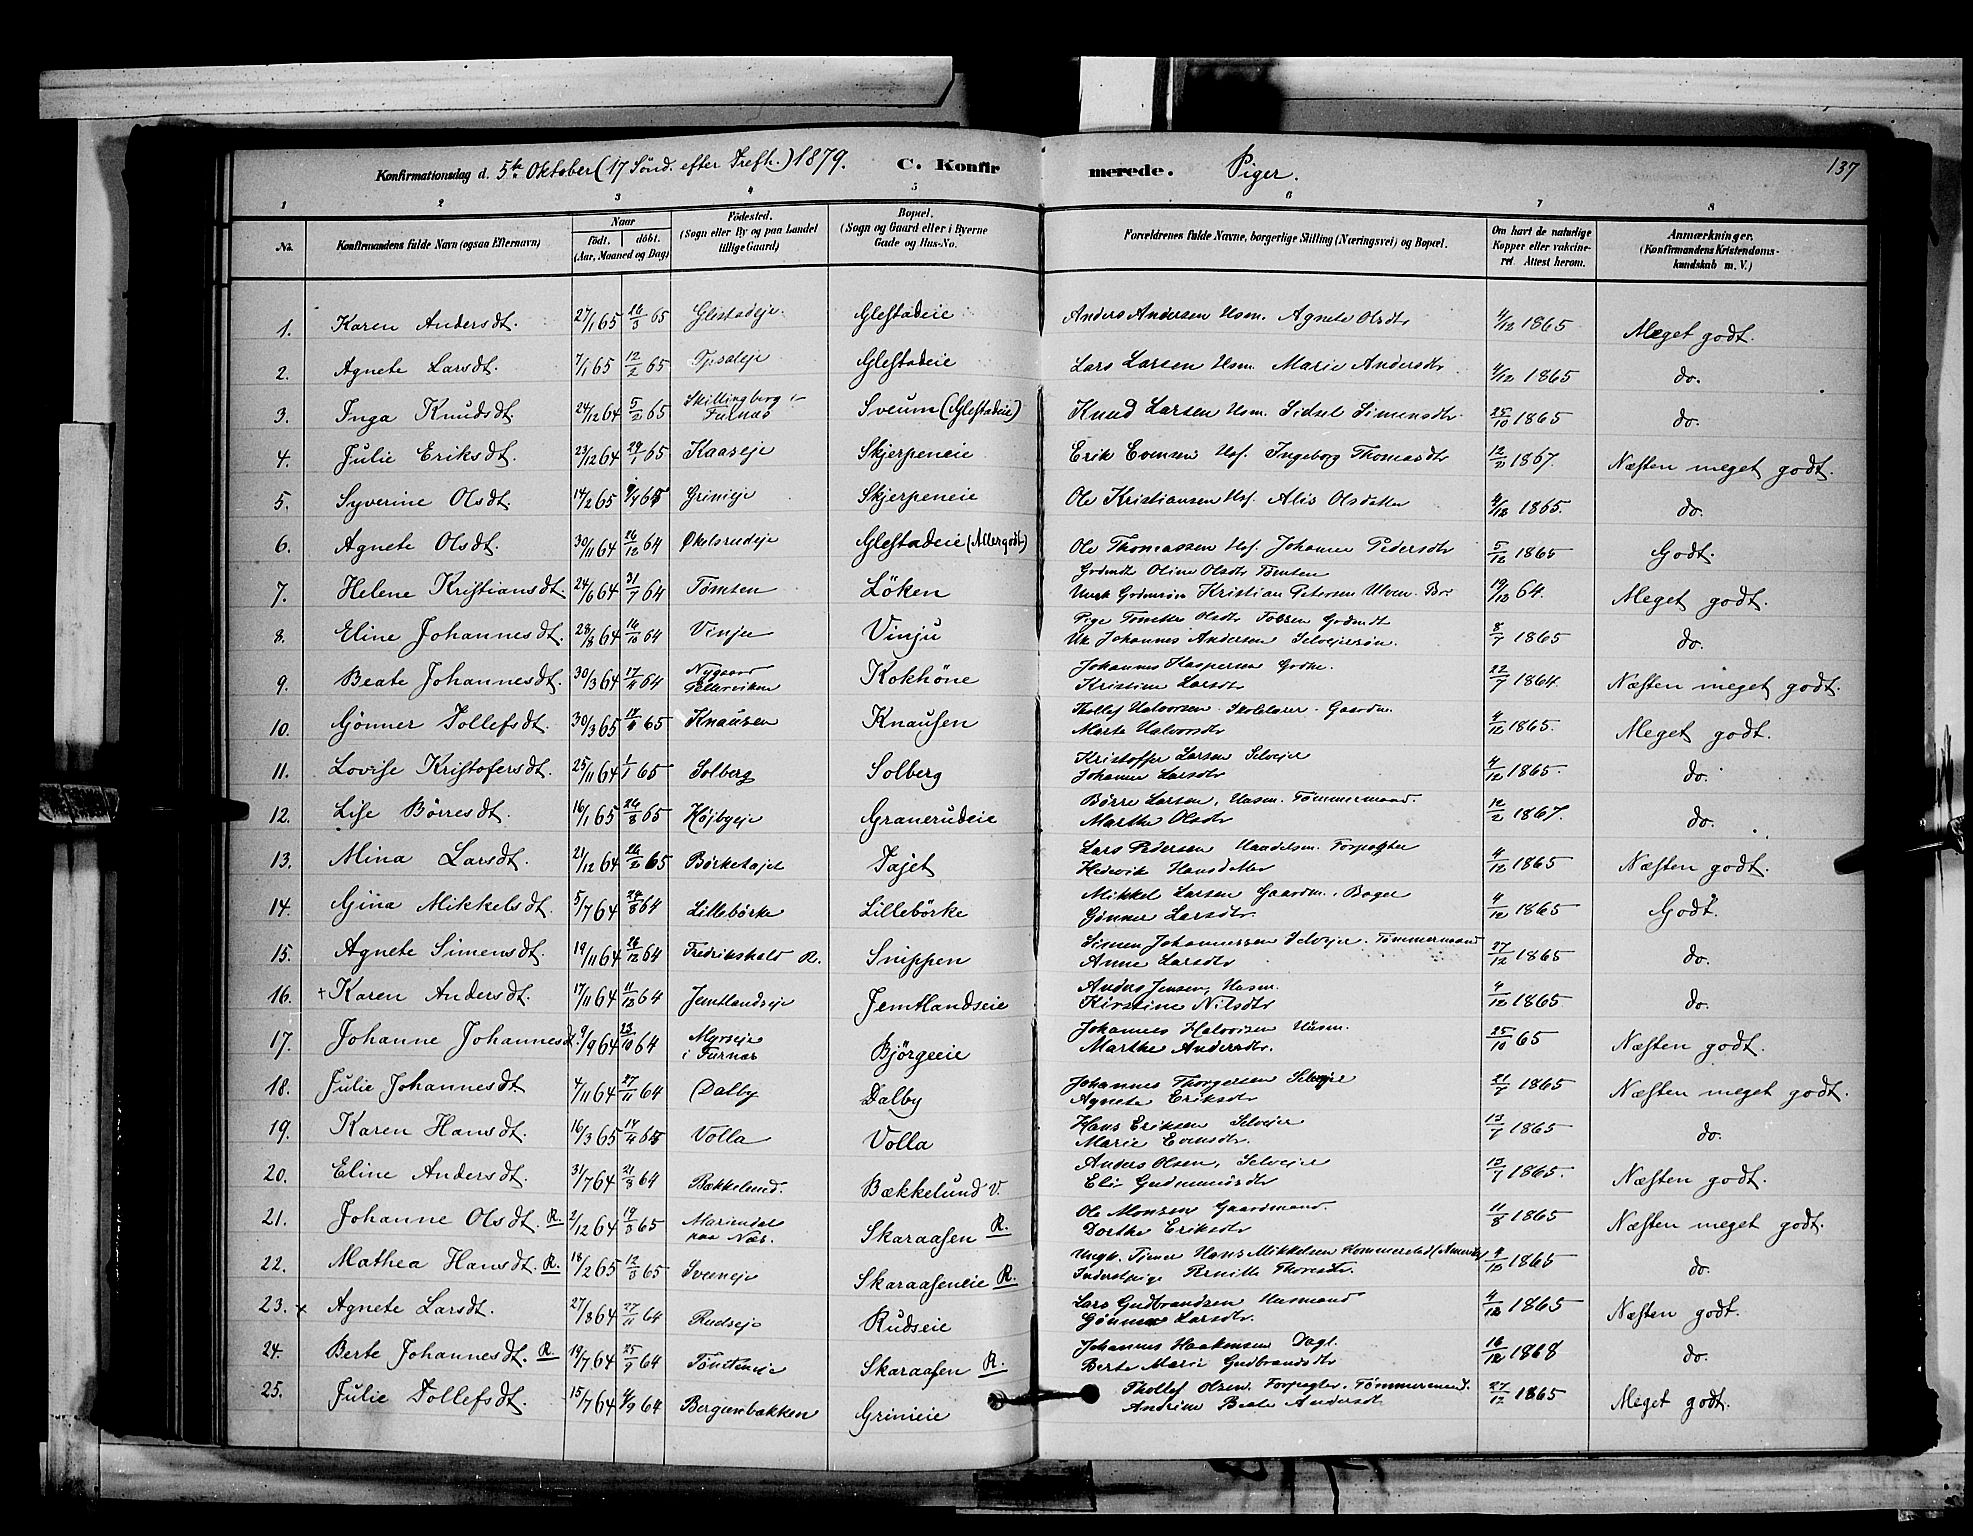 Konfirmationsdag d. 5te Oktober (17 Sönd. efter Trefh.) 1879. C. Konfirmerede. Piger. 137
1 2 3 4 5 6 7 8
No. Konfirmandens fulde Navn (ogsaa Efternavn) Naar födt. döbt. (Aar, Maaned og Dag) Födested. (Sogn eller By og paa Landet tillige Gaard) Bopæl. (Sogn og Gaard eller i Byerne Gade og Hus-No. Forældrenes fulde Navne, borgerlige Stilling (Næringsvei) og Bopæl. Om havt de naturlige Kopper eller vakcineret. Attest herom. Anmærkninger. (Konfirmandens Kristendomskundskab m. V.)
1. Karen Andersdt. 27/1 65 26/3 65 Glestadeje Glestadeie Anders Andersen Usm. Agnete Olsdtr 4/12 1865 Meget godt.
2. Agnete Larsdt. 7/1 65 12/2 65 Glestadeie Lars Larsen Usm. Marie Andersdtr 4/12 1865 do.
3. Inga Knudsdt. 24/12 64 5/2 65 Skillingberg i Furnæs Sveum (Glestadeie) Knud Larsen Usm. Sidsel Simensdtr 25/10 1865 do.
4. Julie Eriksdt. 23/12 64 29/1 65 Kaaseje Skjerpeneie Erik Evensen Usf. Ingeborg Thomasdtr 12/2 1867. Næsten meget godt.
5. Syverine Olsdt. 14/2 65 9/4 65 Grinieje Skjerpeneie Ole Kristiansen Usf. Alis Olsdatter 4/12 1865. do.
6. Agnete Olsdt. 30/11 64 26/12 64 Økelsrudeje Glestadeie (Allergodt) Ole Thomassen Usf. Johanne Pedersdtr 5/12 1865 Godt.
7. Helene Kristiansdt. 24/6 64 31/7 64 Tømten Löken Grdmdtr Oline Olsdtr Tømten
Ungk Grdmsön Kristian Petersen Ulven. Bor 19/12 64. Meget godt.
8. Eline Johannesdt. 28/8 64 16/10 64 Vinju Vinju Pige Olsdtr Grdmdt
Uk Johannes Andersen Selvejersøn. 8/7 1865 do.
9. Beate Johannesdt. 30/3 64 17/4 64 Nygaard Kokhöne Johannes Kaspersen
Kristine Larsdtr 22/7 1864. Næsten meget godt.
10. Gönner Tollefsdt. 30/3 65 65 Knausen Knausen Thollef Halvorsen Skolelærer. Gaardm.
Marte Halvorsdtr 4/12 1865. Meget godt.
11. Lovise Kristofersdt. 25/11 64 1/1 65 Solberg Solberg Kristoffer Larsen Selvejer
Johanne Larsdtr 4/12 1865. do.
12. Lise Börresdt. 16/1 65 26/3 65 Højbyeje Granerudeie Börre Larsen, Husm. Tømmermand.
Marthe Olsdtr 12/2 1867. do.
13. Mina Larsdt. 21/12 64 26/2 65 Börketajet Tajet Lars Pedersen Handelsm. Forpagter
Hedevik Hansdatter 4/12 1865 Næsten godt.
14. Gina Mikkelsdt. 5/7 64 28/8 64 Lillebörke Lillebörke Mikkel Larsen Gaardm. Bager
Gönner Larsdtr 4/12 1865 Godt.
15. Agnete Simensdt. 19/11 64 26/12 64 Fredrikshald R. Snippen Simen Johannessen Selvejer. Tömmermand
Anne Larsdtr 27/12 1865 do.
16. + Karen Andersdt. 17/11 64 11/12 64 Jemtlandseje Jemtlandseie Anders Jensen, Husm.
Kirstine Nilsdtr 4/12 1865 do.
17. Johanne Johannesdt. 9/9 64 23/10 64 Myrseje i Furnæs Björgeeie Johannes Halvorsen Husm.
Marthe Andersdtr. 25/10 65 Næsten godt.
18. Julie Johannesdt. 4/11 64 27/11 64 Dalby Dalby Johannes Thorgersen Selvejer
Agnete Eriksdtr 21/7 1865 Næsten meget godt.
19. Karen Hansdt. 16/3 65 17/4 65 Volla Volla Hans Eriksen Selvejer
Marie Evensdtr. 13/7 1865 do.
20. Eline Andersdt. 31/7 64 21/8 64 Bækkelund. Bækkelund V. Anders Olsen, Selvejer
Eli Gudmundsdtr 13/7 1865. Næsten godt.
21. Johanne Olsdt. R. 2/12 64 19/3 65 Mariendal paa Næs. Skaraasen R. Ole Monsen Gaardmand.
Dorthe Eriksdtr 11/8 1865 Næsten meget godt.
22. Mathea Hansdt. R. 18/2 65 12/3 65 Sveneje Skaraaseneie R. Ungk. Tjener Hans Mikkelsen Hommerstad (Amerika)
Inderstpige Pernille Thoresdtr. 4/12 1865 do.
23. x Agnete Larsdt. 27/8 64 27/11 64 Rudseje Rudseie Lars Gudbrandsen Husmand
Gönner Larsdtr 4/12 1865 Næsten godt.
24. Berte Johannesdt. R. 19/7 64 25/9 64 Tömteneje Skaraasen R. Johannes Haakensen Dagl.
Berte Marie Gudbrandsdtr 16/12 1868 do.
25. Julie Tollefsdt. 15/7 64 4/9 64 Bergsenbakken Grinieie Thollef Olsen. Forpagter. Tömmermand.
Andrine Beate Andersdtr 27/12 1865 Meget godt.